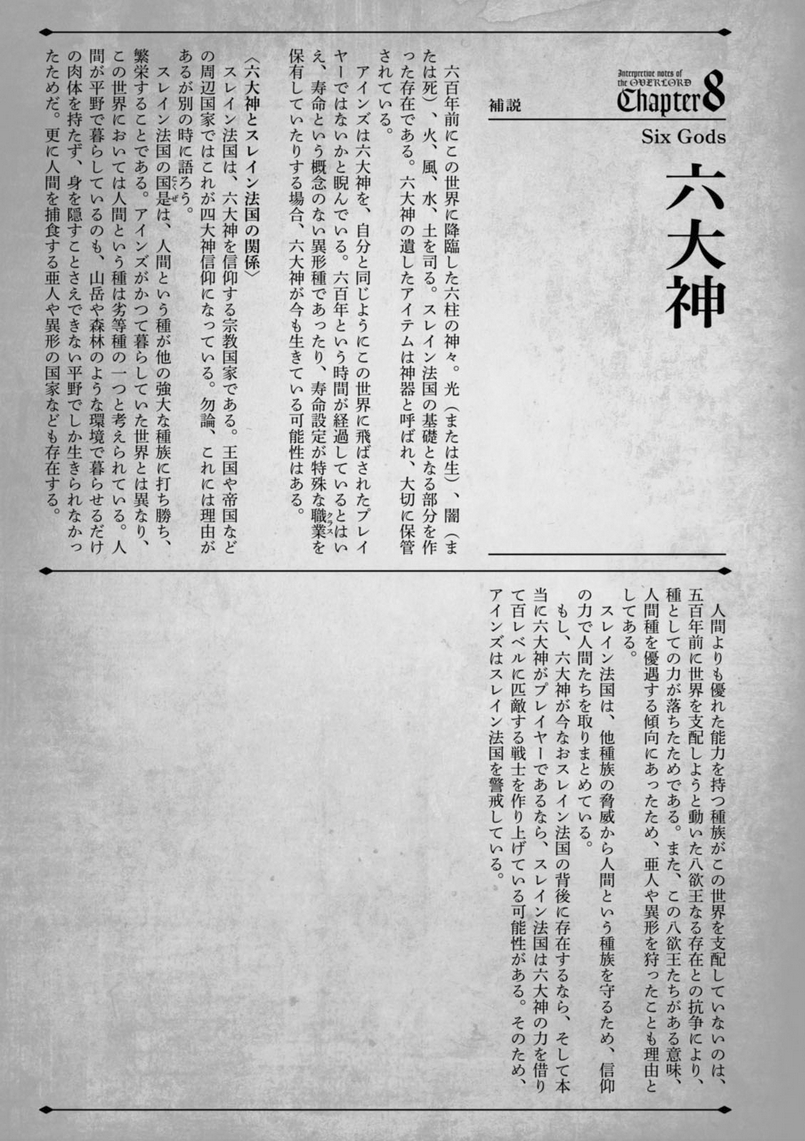 Interpretive notes of
the OVERLORD
Chapter8
補説
Six Gods
六大神
六百年前にこの世界に降臨した六柱の神々。光（または生）、闇（ま
たは死）、火、風、水、土を司る。スレイン法国の基礎となる部分を作
った存在である。六大神の遺したアイテムは神器と呼ばれ、大切に保管
されている。
アインズは六大神を、自分と同じようにこの世界に飛ばされたプレイ
ヤーではないかと睨んでいる。六百年という時間が経過しているとはい
え、寿命という概念のない異形種であったり、寿命設定が特殊な職業を
クラス
保有していたりする場合、六大神が今も生きている可能性はある。
〈六大神とスレイン法国の関係〉
スレイン法国は、六大神を信仰する宗教国家である。王国や帝国など
の周辺国家ではこれが四大神信仰になっている。勿論、これには理由が
あるが別の時に語ろう。
スレイン法国の国是は、人間という種が他の強大な種族に打ち勝ち、
こくぜ
繁栄することである。アインズがかつて暮らしていた世界とは異なり、
この世界においては人間という種は劣等種の一つと考えられている。人
間が平野で暮らしているのも、山岳や森林のような環境で暮らせるだけ
の肉体を持たず、身を隠すことさえできない平野でしか生きられなかっ
たためだ。更に人間を捕食する亜人や異形の国家なども存在する。
人間よりも優れた能力を持つ種族がこの世界を支配していないのは、
五百年前に世界を支配しようと動いた八欲王なる存在との抗争により、
種としての力が落ちたためである。また、この八欲王たちがある意味、
人間種を優遇する傾向にあったため、亜人や異形を狩ったことも理由と
してある。
スレイン法国は、他種族の脅威から人間という種族を守るため、信仰
の力で人間たちを取りまとめている。
もし、六大神が今なおスレイン法国の背後に存在するなら、そして本
当に六大神がプレイヤーであるなら、スレイン法国は六大神の力を借り
て百レベルに匹敵する戦士を作り上げている可能性がある。そのため、
アインズはスレイン法国を警戒している。